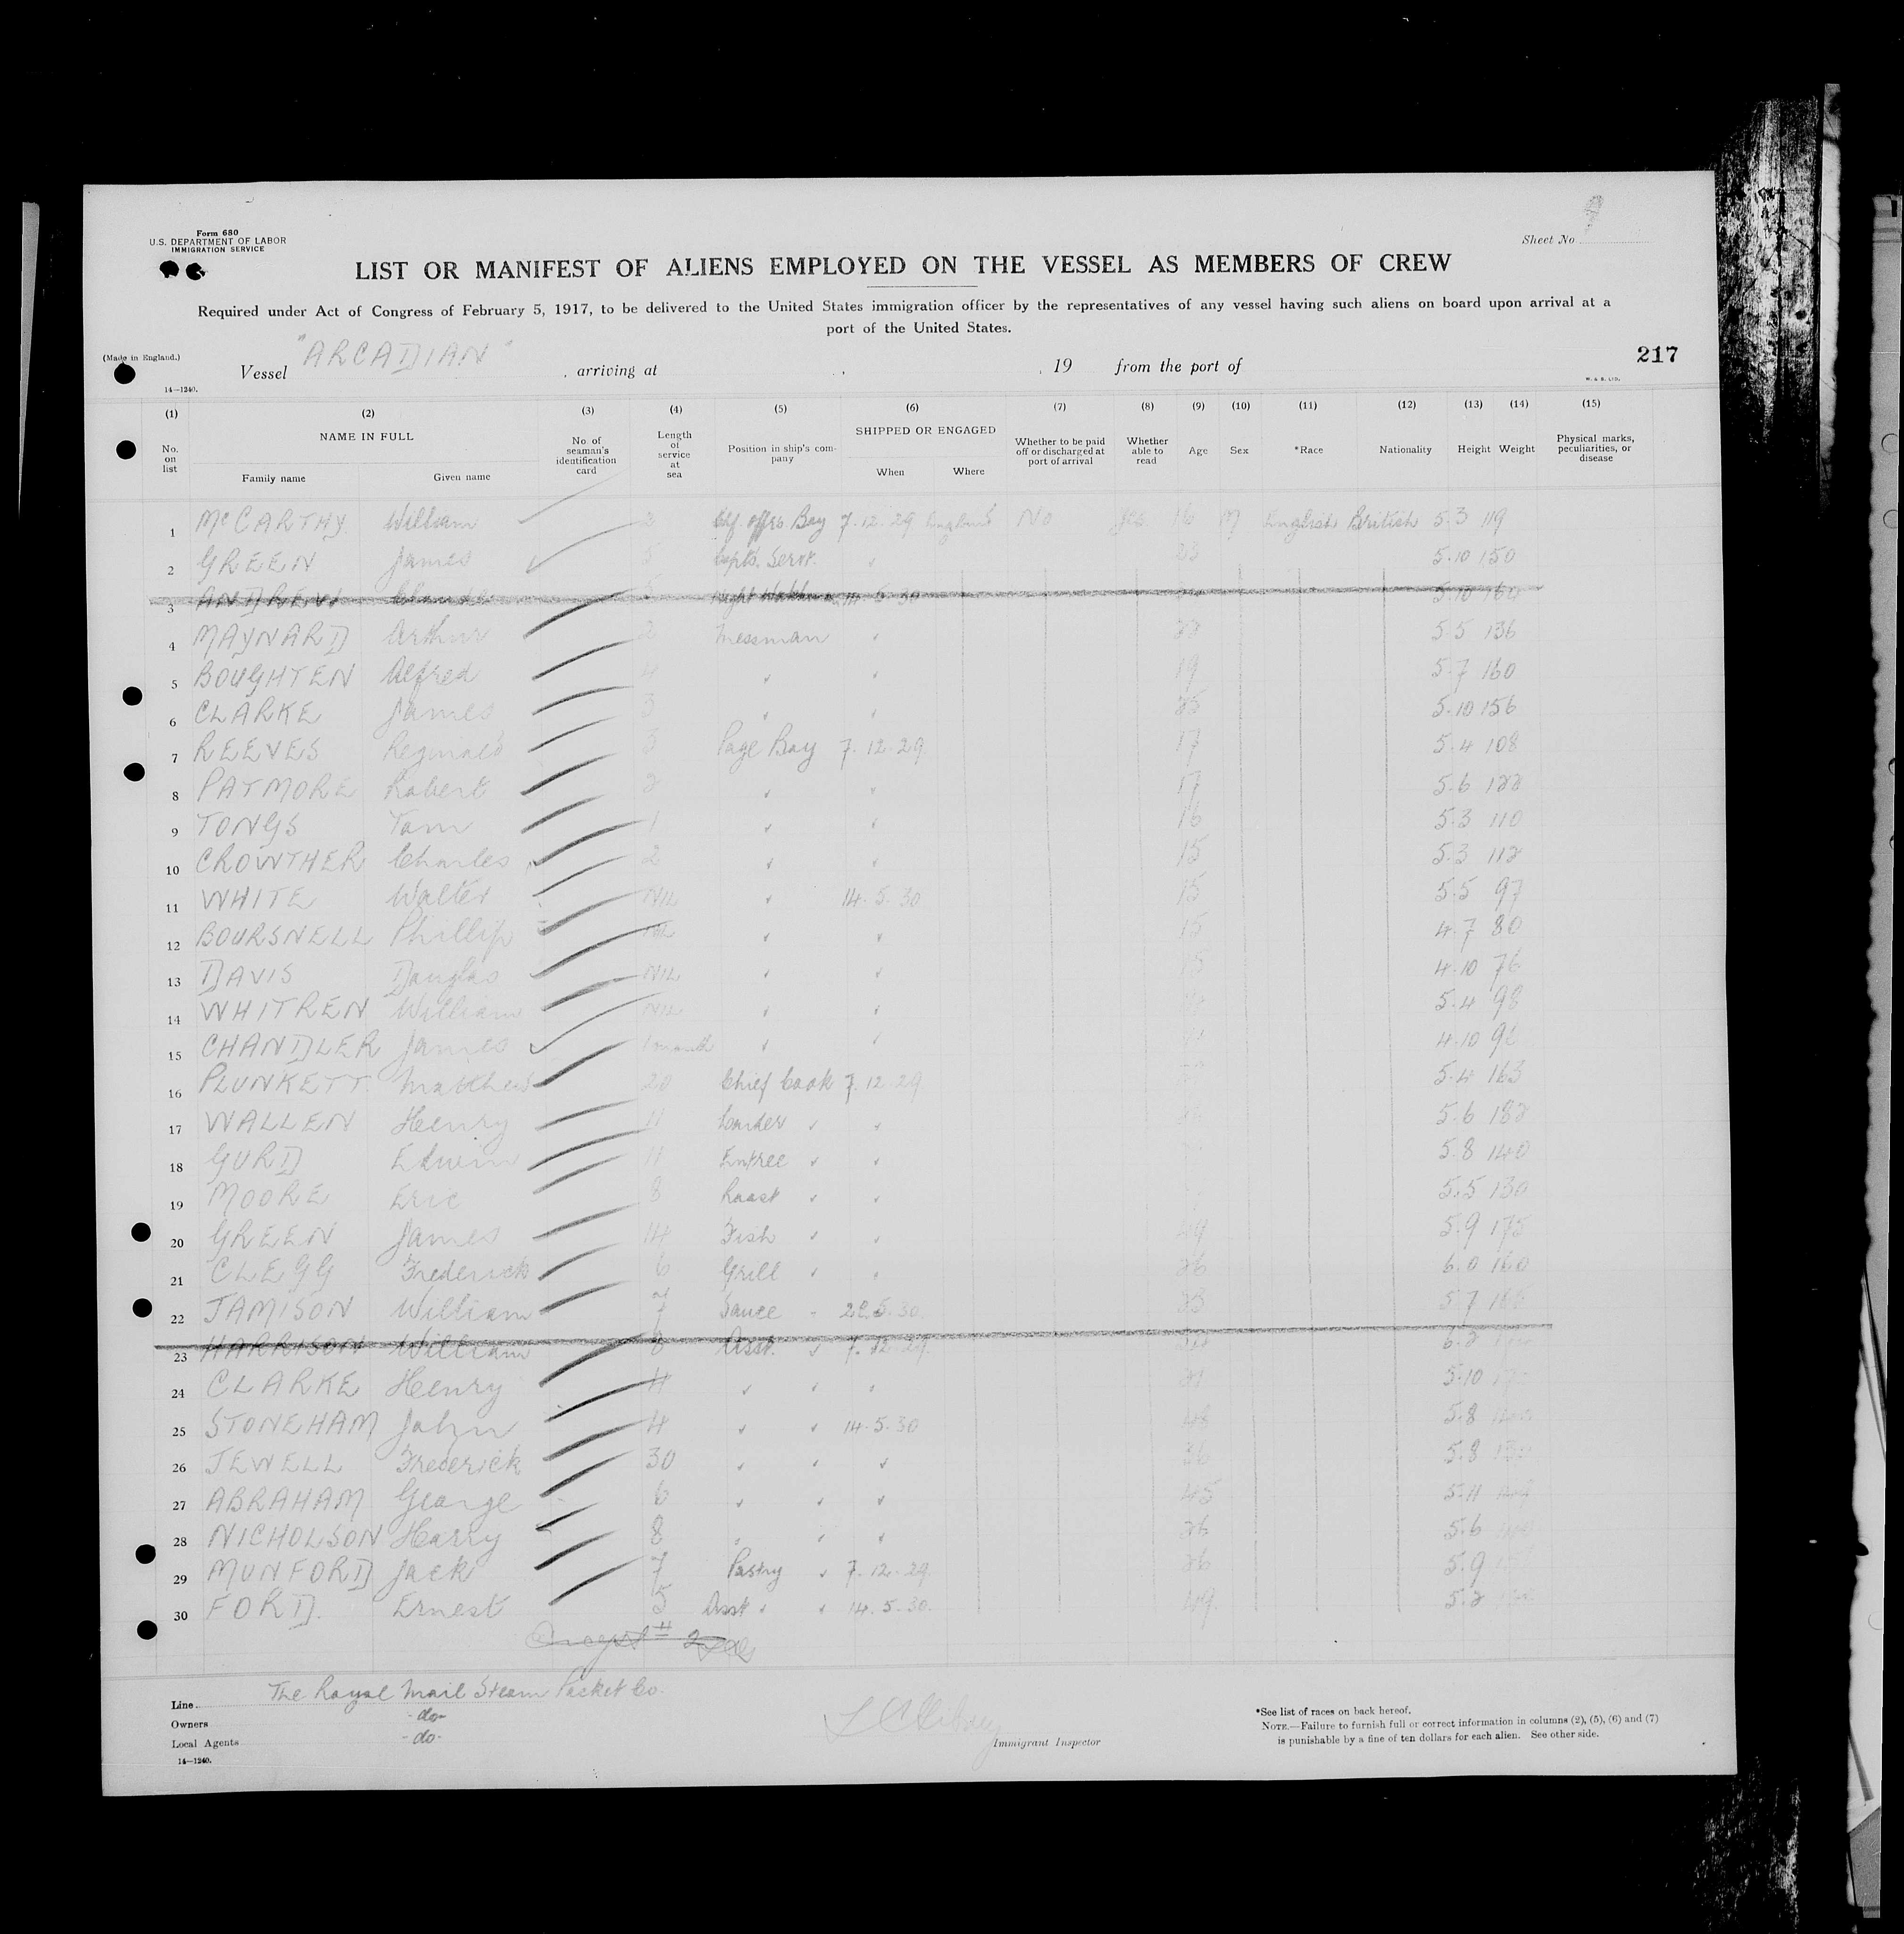 Form 680
U.S. DEPARTMENT OF LABOR
IMMIGRATION SERVICE
Sheet No
LIST OR MANIFEST OF ALIENS EMPLOYED ON THE VESSEL AS MEMBERS OF CREW
Required under Act of Congress of February 5, 1917, to be delivered to the United States immigration officer by the representatives of any vessel having such aliens on board upon arrival at a
port of the United States.
(Made in England.)
Vessel "ARCADIAN" , arriving at , , 19 from the port of
217
14—1240.
W. & S. LTD.
(1) (2) (3) (4) (5) (6) (7) (8) (9) (10) (11) (12) (13) (14) (15)
No. on list NAME IN FULL Family name Given name No. of seaman's identification card Length of service at sea Position in ship's company SHIPPED OR ENGAGED When Where Whether to be paid off or discharged at port of arrival Whether able to read Age Sex *Race Nationality Height Weight Physical marks, peculiarities, or disease
1 McCARTHY William 2 Boy 7.12.29 England No Yes 16 M English British 5.3 119
2 GREEN James 5 Capts. Servt. " 23 5.10 150
3 ANDREWS Claude 5 Night Watchman 14.5.30 5.10 160
4 MAYNARD Arthur 2 Messman " 22 5.5 136
5 BOUGHTEN Alfred 4 " " 19 5.7 160
6 CLARKE James 3 " " 25 5.10 156
7 REEVES Reginald 3 Page Boy 7.12.29 17 5.4 108
8 PATMORE Robert 2 " " 17 5.6 122
9 TONGS Tom 1 " " 16 5.3 110
10 CROWTHER Charles 2 " " 15 5.3 112
11 WHITE Walter NIL " 14.5.30 15 5.5 97
12 BOURSNELL Phillip NIL " " 15 4.7 80
13 DAVIS Douglas NIL " " 15 4.10 76
14 WHITREN William NIL " " 5.4 98
15 CHANDLER James 1 month " " 4.10
16 PLUNKETT Matthew 20 Chief Cook 7.12.29 5.4 163
17 WALLEN Henry 11 Larder " " 5.6 182
18 GURD Edwin 11 Entree " " 5.8 140
19 MOORE Eric 8 Roast " " 5.5 130
20 GREEN James 14 Fish " " 5.9 175
21 CLEGG Frederick 6 Grill " " 26 6.0 160
22 JAMISON William 7 Sauce " 5.30 23 5.7
23 HARRISON William 8 Asst. " 7.12.29 6.2
24 CLARKE Henry 4 " " " 5.10
25 STONEHAM John 4 " " 14.5.30 5.8
26 JEWELL Frederick 30 " " " 5.8
27 ABRAHAM George 6 " " " 45 5.11
28 NICHOLSON Harry 8 " " " 26 5.6
29 MUNFORD Jack 7 Pastry " 7.12.29 26 5.9
30 FORD. Ernest 5 Asst " " 14.5.30. 5.2
Line The Royal Mail Steam Packet Co.
Owners -do-
Local Agents -do-
14—1240.
Immigrant Inspector
*See list of races on back hereof.
NOTE.—Failure to furnish full or correct information in columns (2), (5), (6) and (7)
is punishable by a fine of ten dollars for each alien. See other side.